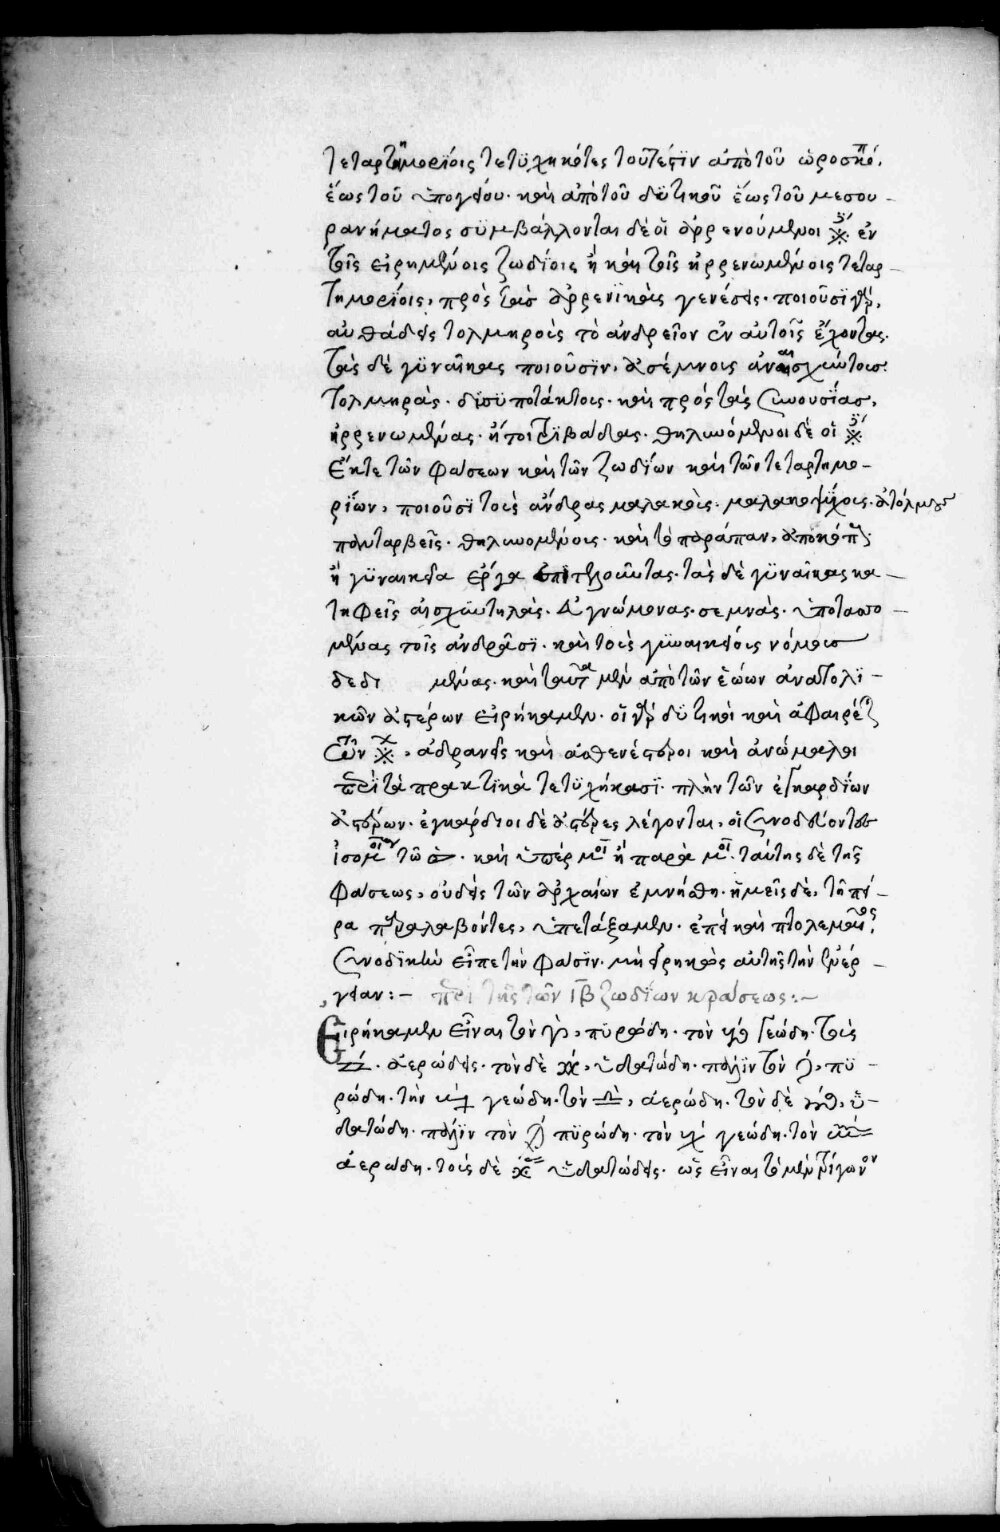 τεταρτημορίοις τετυχηκότες τουτέστιν ἀπὸ τοῦ ὡροσκό
ἕως τοῦ ὑπογείου· καὶ ἀπὸ τοῦ δυτικοῦ ἕως τοῦ μεσου
ρανήματος συμβάλλονται δὲ οἱ ἀρρενούμενοι ἐν
τοῖς εἰρημένοις ζωδίοις ἢ καὶ τοῖς ἠρρενωμένοις τεταρ
τημορίοις, πρὸς τὰς ἀρρενικὰς γενέσεις· ποιοῦσι γὰρ,
αὐθάδεις τολμηροὺς τὸ ἀνδρεῖον ἐν αὐτοῖς ἔχοντας.
τὰς δὲ γυναῖκας ποιοῦσιν, ἀσέμνους ἀναισχύντους
τολμηρὰς· δυσυποτάκτους· καὶ πρὸς τὰς συνουσίας,
ἠρρενωμένας· ἤτοι τριβάδας· θηλυνόμενοι δὲ οἱ
ἔκ τε τῶν φάσεων καὶ τῶν ζωδίων καὶ τῶν τεταρτημο
ρίων, ποιοῦσι τοὺς ἄνδρας μαλακοὺς· μαλακοψύχους· ἀτόλμους
πολυταρβεῖς· θηλυνομένους· καὶ τὸ παράπαν, ἀποκόπους
ἢ γυναικεῖα ἔργα ἐπιτελοῦντας· τὰς δὲ γυναῖκας κα
τηφεῖς αἰσχυντηλὰς· εὐγνώμονας· σεμνὰς· ὑποτασσο
μένας τοῖς ἀνδράσι· καὶ τοὺς γυναικείους νόμους
δεδι μένας· καὶ ταῦτα μὲν ἀπὸ τῶν ἑώων ἀνατολι
κῶν ἀστέρων εἰρήκαμεν· οἱ γὰρ δυτικοὶ καὶ ἀφαιρέται
τῶν ἀδρανεῖς καὶ ἀσθενέστεροι καὶ ἀνώμαλοι
περὶ τὰ πρακτικὰ τετυχήκασι· πλὴν τῶν ἐγκαρδίων
ἀστέρων· ἐγκάρδιοι δὲ ἀστέρες λέγονται, οἱ συνοδεύοντες
ἰσομοι τῷ ☉· καὶ ὑπὲρ μοῖ ἢ παρὰ μοῖ· ταύτης δὲ τῆς
φάσεως, οὐδεὶς τῶν ἀρχαίων ἐμνήσθη· ἡμεῖς δὲ, τῇ πεί
ρα παραλαβόντες, ὑπετάξαμεν· ἐπεὶ καὶ πτολεμαῖος
συνοδικὴν εἶπε τὴν φάσιν· μὴ εἰρηκὼς αὐτῆς τὴν ἐνέρ
γειαν:— περὶ τῆς τῶν ιβ ζωδίων κράσεως:—
Εἰρήκαμεν εἶναι τὸν ♈, πυρώδη· τὸν ♉ γεώδη· τοὺς
♊· ἀερώδεις· τὸν δὲ ♋, ὑδατώδη· πάλιν τὸν ♌, πυ
ρώδη· τὴν ♍ γεώδη· τὸν ♎, ἀερώδη· τὸν δὲ ♏, ὑ
δατώδη· πάλιν τὸν ♐ πυρώδη· τὸν ♑ γεώδη· τὸν ♒
ἀερώδη· τοὺς δὲ ♓ ὑδατώδεις· ὡς εἶναι τὸ μὲν τρίγωνον